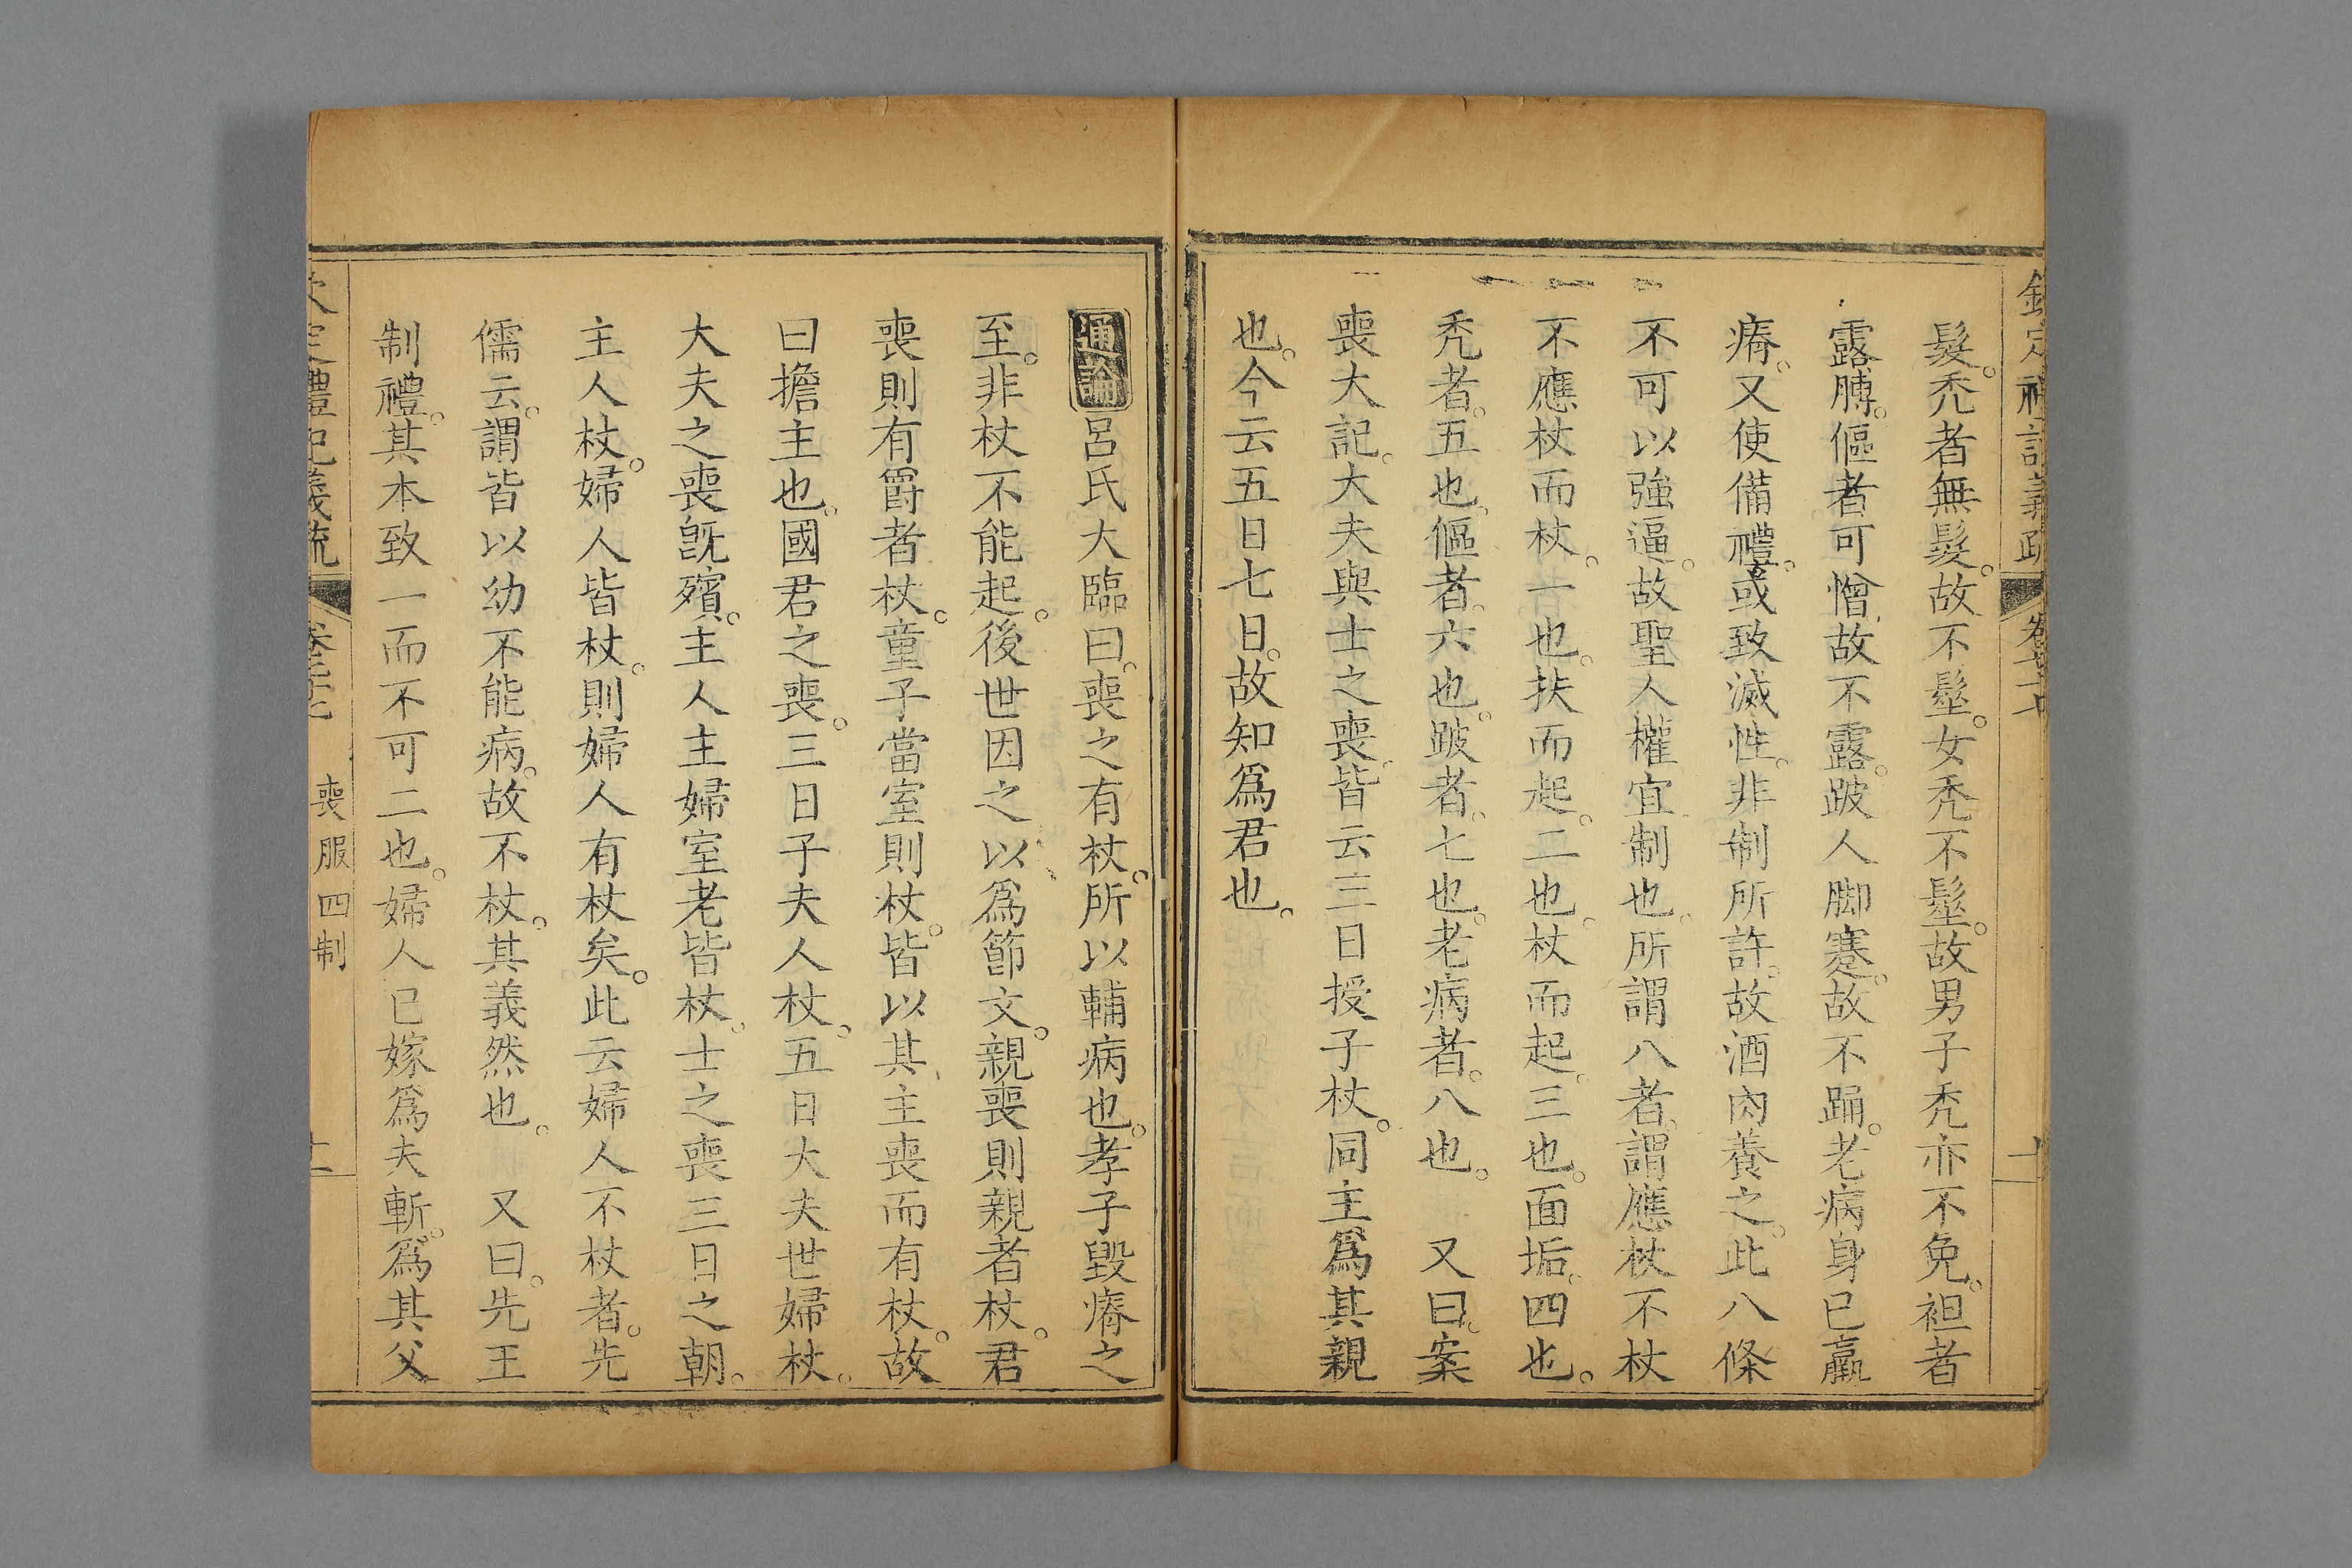 髮。禿者無髮。故不髽。女禿不髽。故男子禿亦不免。袒者
露膊。傴者可憎。故不露。跛人脚蹇。故不踊。老病身已羸
瘠。又使備禮。或致滅性。非制所許。故酒肉養之。此八條
不可以強逼。故聖人權宜制也。所謂八者。謂應杖不杖
不應杖而杖。一也。扶而起。二也。杖而起。三也。面垢。四也。
禿者。五也。傴者。六也。跛者。七也。老病者。八也。 又曰。案
喪大記。大夫與士之喪。皆云三日授子杖。同主爲其親
也。今云五日七日。故知爲君也。
通論呂氏大臨曰。喪之有杖。所以輔病也。孝子毀瘠之
至。非杖不能起。後世因之以爲節文。親喪則親者杖。君
喪則有爵者杖。童子當室則杖。皆以其主喪而有杖。故
曰擔主也。國君之喪。三日子夫人杖。五日大夫世婦杖。
大夫之喪旣殯。主人主婦室老皆杖。士之喪三日之朝。
主人杖。婦人皆杖。則婦人有杖矣。此云婦人不杖者。先
儒云。謂皆以幼不能病。故不杖。其義然也。 又曰。先王
制禮。其本致一而不可二也。婦人已嫁爲夫斬。爲其父
喪服四制